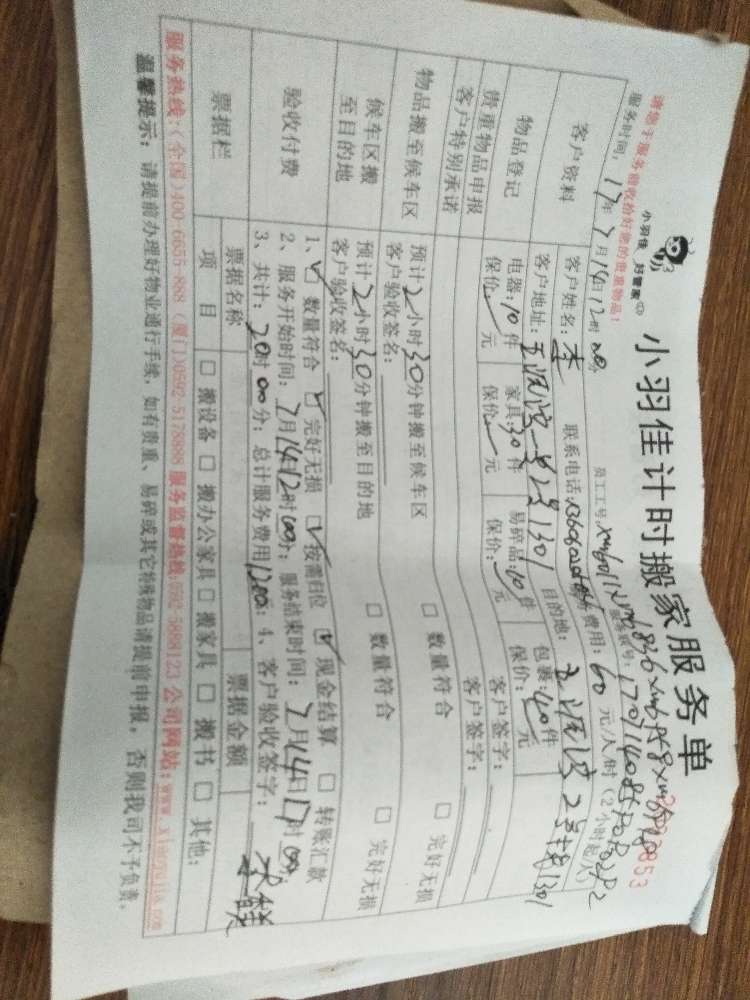 小羽佳 好管家
小羽佳计时搬家服务单
请您于服务前收拾好您的贵重物品!
服务时间: 17年7月14日12时00分 员工工号: 服务账号:
客户资料
客户姓名: 李 联系电话: 费用: 60元/人/时 (2小时起)
客户地址: 目的地:
物品登记
电器: 10件 家具: 30件 易碎品: 10件 包裹: 40件
保价: 元 保价: 元 保价: 元 保价: 元
贵重物品申报 客户签字:
客户特别承诺 客户签字:
物品搬至候车区
预计2小时30分钟搬至候车区 □ 数量符合 □ 完好无损
客户验收签名:
候车区搬
至目的地
预计2小时30分钟搬至目的地 □ 数量符合 □ 完好无损
客户验收签名:
验收付费
1、☑ 数量符合 ☑ 完好无损 ☑ 按需归位 ☑ 现金结算 □ 转账汇款
2、服务开始时间: 7月14日12时00分; 服务结束时间: 7月14日17时00分
3、共计: 20时00分; 总计服务费用1200元; 4、客户验收签字:
票据栏
票据名称 票据金额
项 目 □ 搬设备 □ 搬办公家具 □ 搬家具 □ 搬书 □ 其他:
服务热线:(全国)400-6655-888 (厦门)0592-5178888 服务监督热线:0592-5888123 公司网站:www.xiaoyujia.com
温馨提示: 请提前办理好物业通行手续, 如有贵重、易碎或其它特殊物品请提前申报, 否则我司不予负责。